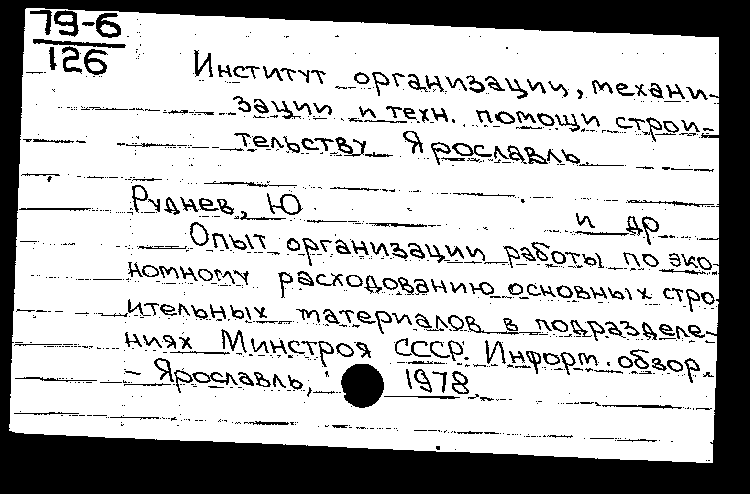 79-6
126
Институт организации, механи-
зации и техн. помощи строи-
тельству Ярославль.
Руднев, Ю
и др
Опыт организации работы по эко-
номному расходованию основных стро-
ительных материалов в подразделе-
ниях Минстроя СССР. Информ. обзор.
- Ярославль, 1978.